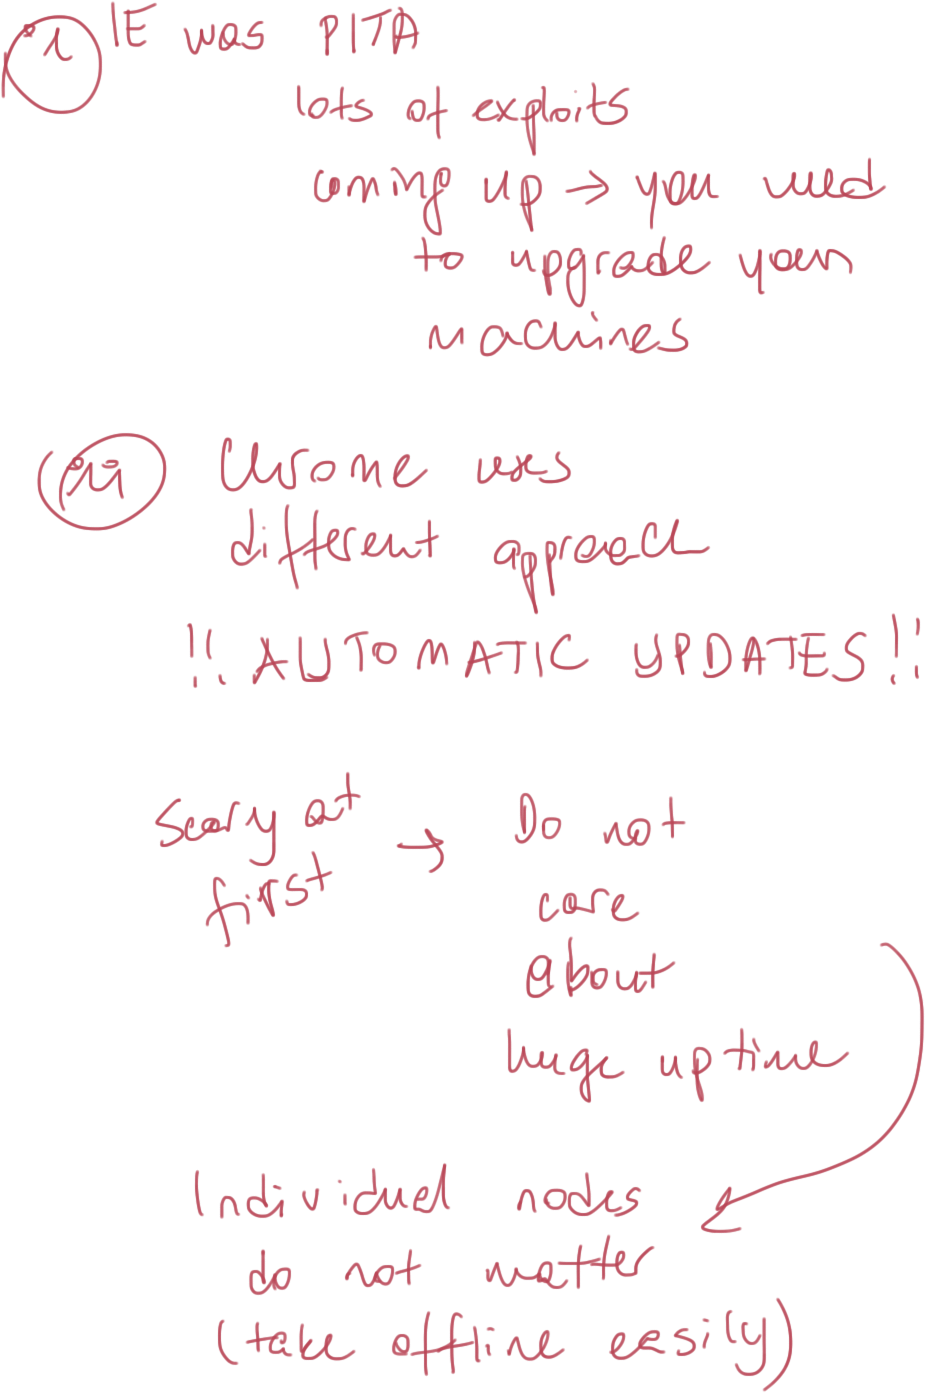 i IE was PITA
lots of exploits
coming up → you need
to upgrade your
machines
ii Chrome uses
different approach
!! AUTOMATIC UPDATES !!
Scary at
first →
Do not
care
about
huge uptime
Individual nodes
do not matter
(take offline easily)